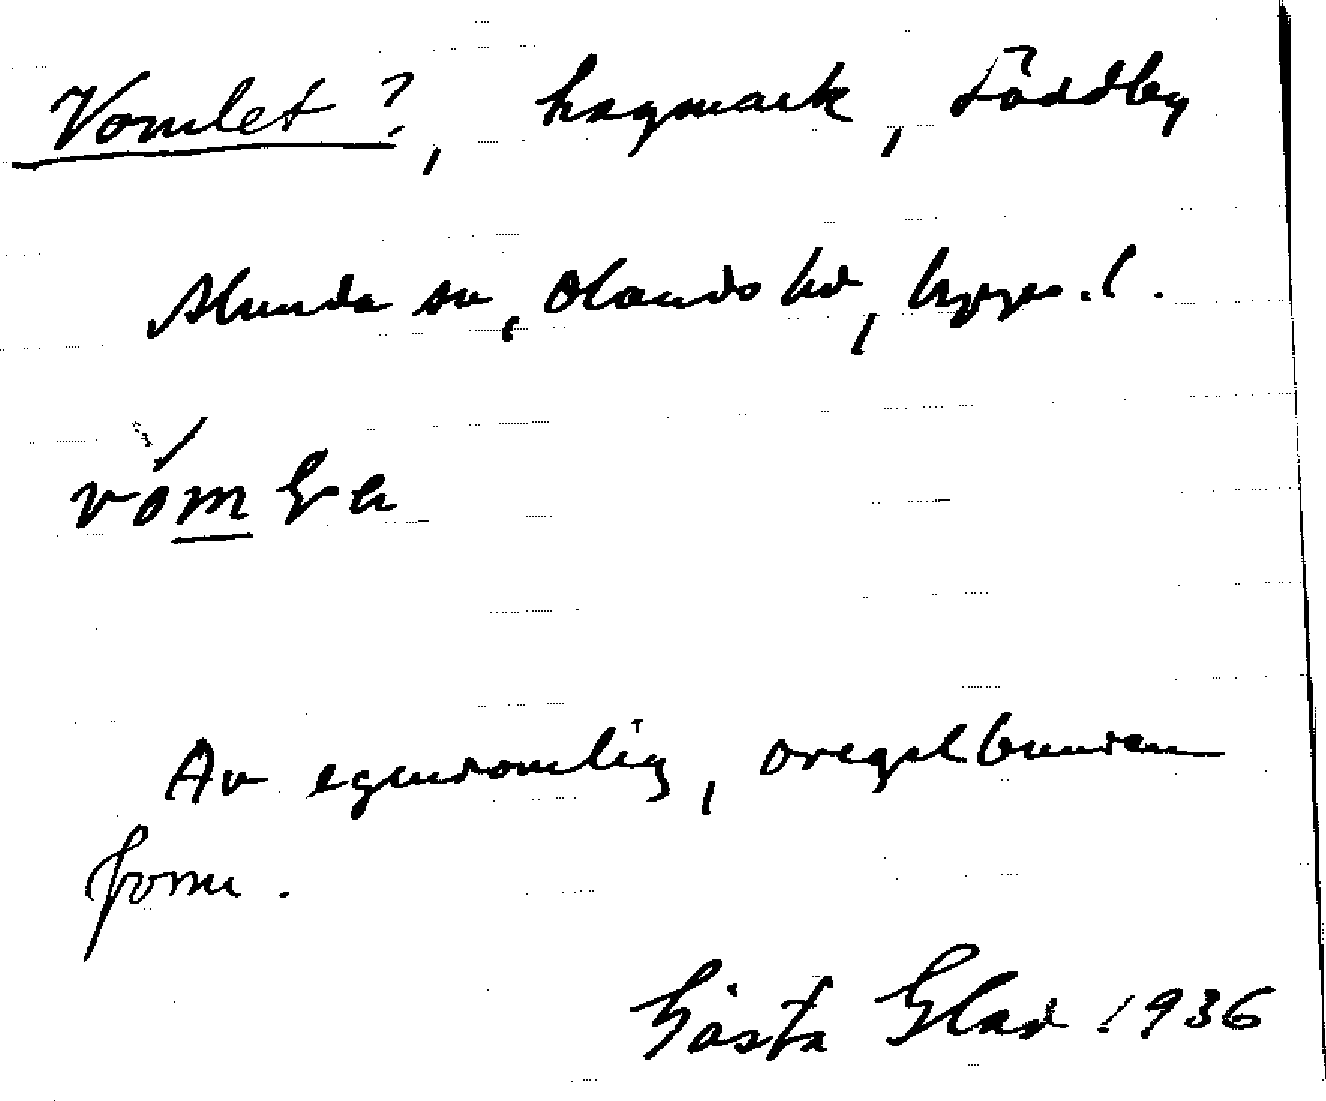 Vomlet?, hagmark, Löddby
Alunda sn, Olands hd, Upps. l.
Av egendomlig, oregelbunden
form.
Gösta Glad 1936